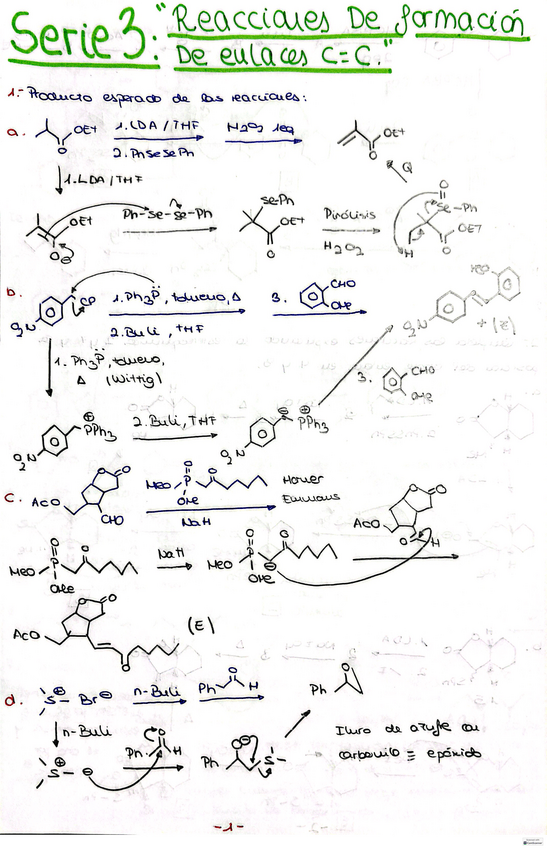 Serie 3: "Reacciones De formación
De enlaces C=C."
1.- Producto esperado de las reacciones:
a. OEt O 1. LDA/THF 2. PhSeSePh H₂O₂ 1eq OEt O
1. LDA/THF
Q
OEt O⊖ Ph-Se-Se-Ph Se-Ph OEt O Pirólisis H₂O₂ O Se-Ph OET O H
b. O₂N 1. Ph₃P̈, tolueno, Δ 2. BuLi, THF 3. CHO OMe O₂N
+ (Z)
1. Ph₃P̈, tolueno,
Δ (Wittig)
3. CHO OMe
O₂N ⊕PPh₃ 2. BuLi, THF O₂N ⊖ ⊕PPh₃
c. AcO O O CHO MeO P O O OMe NaH Horner
Emmons
AcO O O O H
MeO P O O OMe NaH MeO P O O OMe ⊖
AcO O O O (E)
d. S⊕ Br⊖ n-BuLi Ph O H Ph O
n-BuLi
S⊕ ⊖ Ph O H Ph O⊖ S⊕
Iluro de azufre con
carbonilo ≡ epóxido
-1-